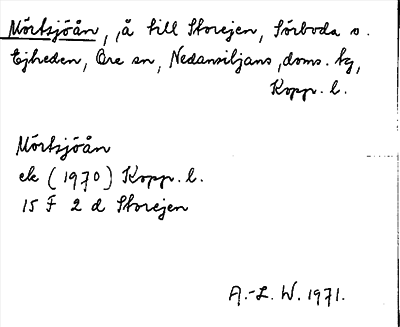 Mörtsjöån, å till Storejen, Sörboda o.
Ejheden, Ore sn, Nedansiljans doms. tg,
Kopp. l.
Mörtsjöån
ek (1970) Kopp. l.
15 F 2 d Storejen
A.-L. W. 1971.